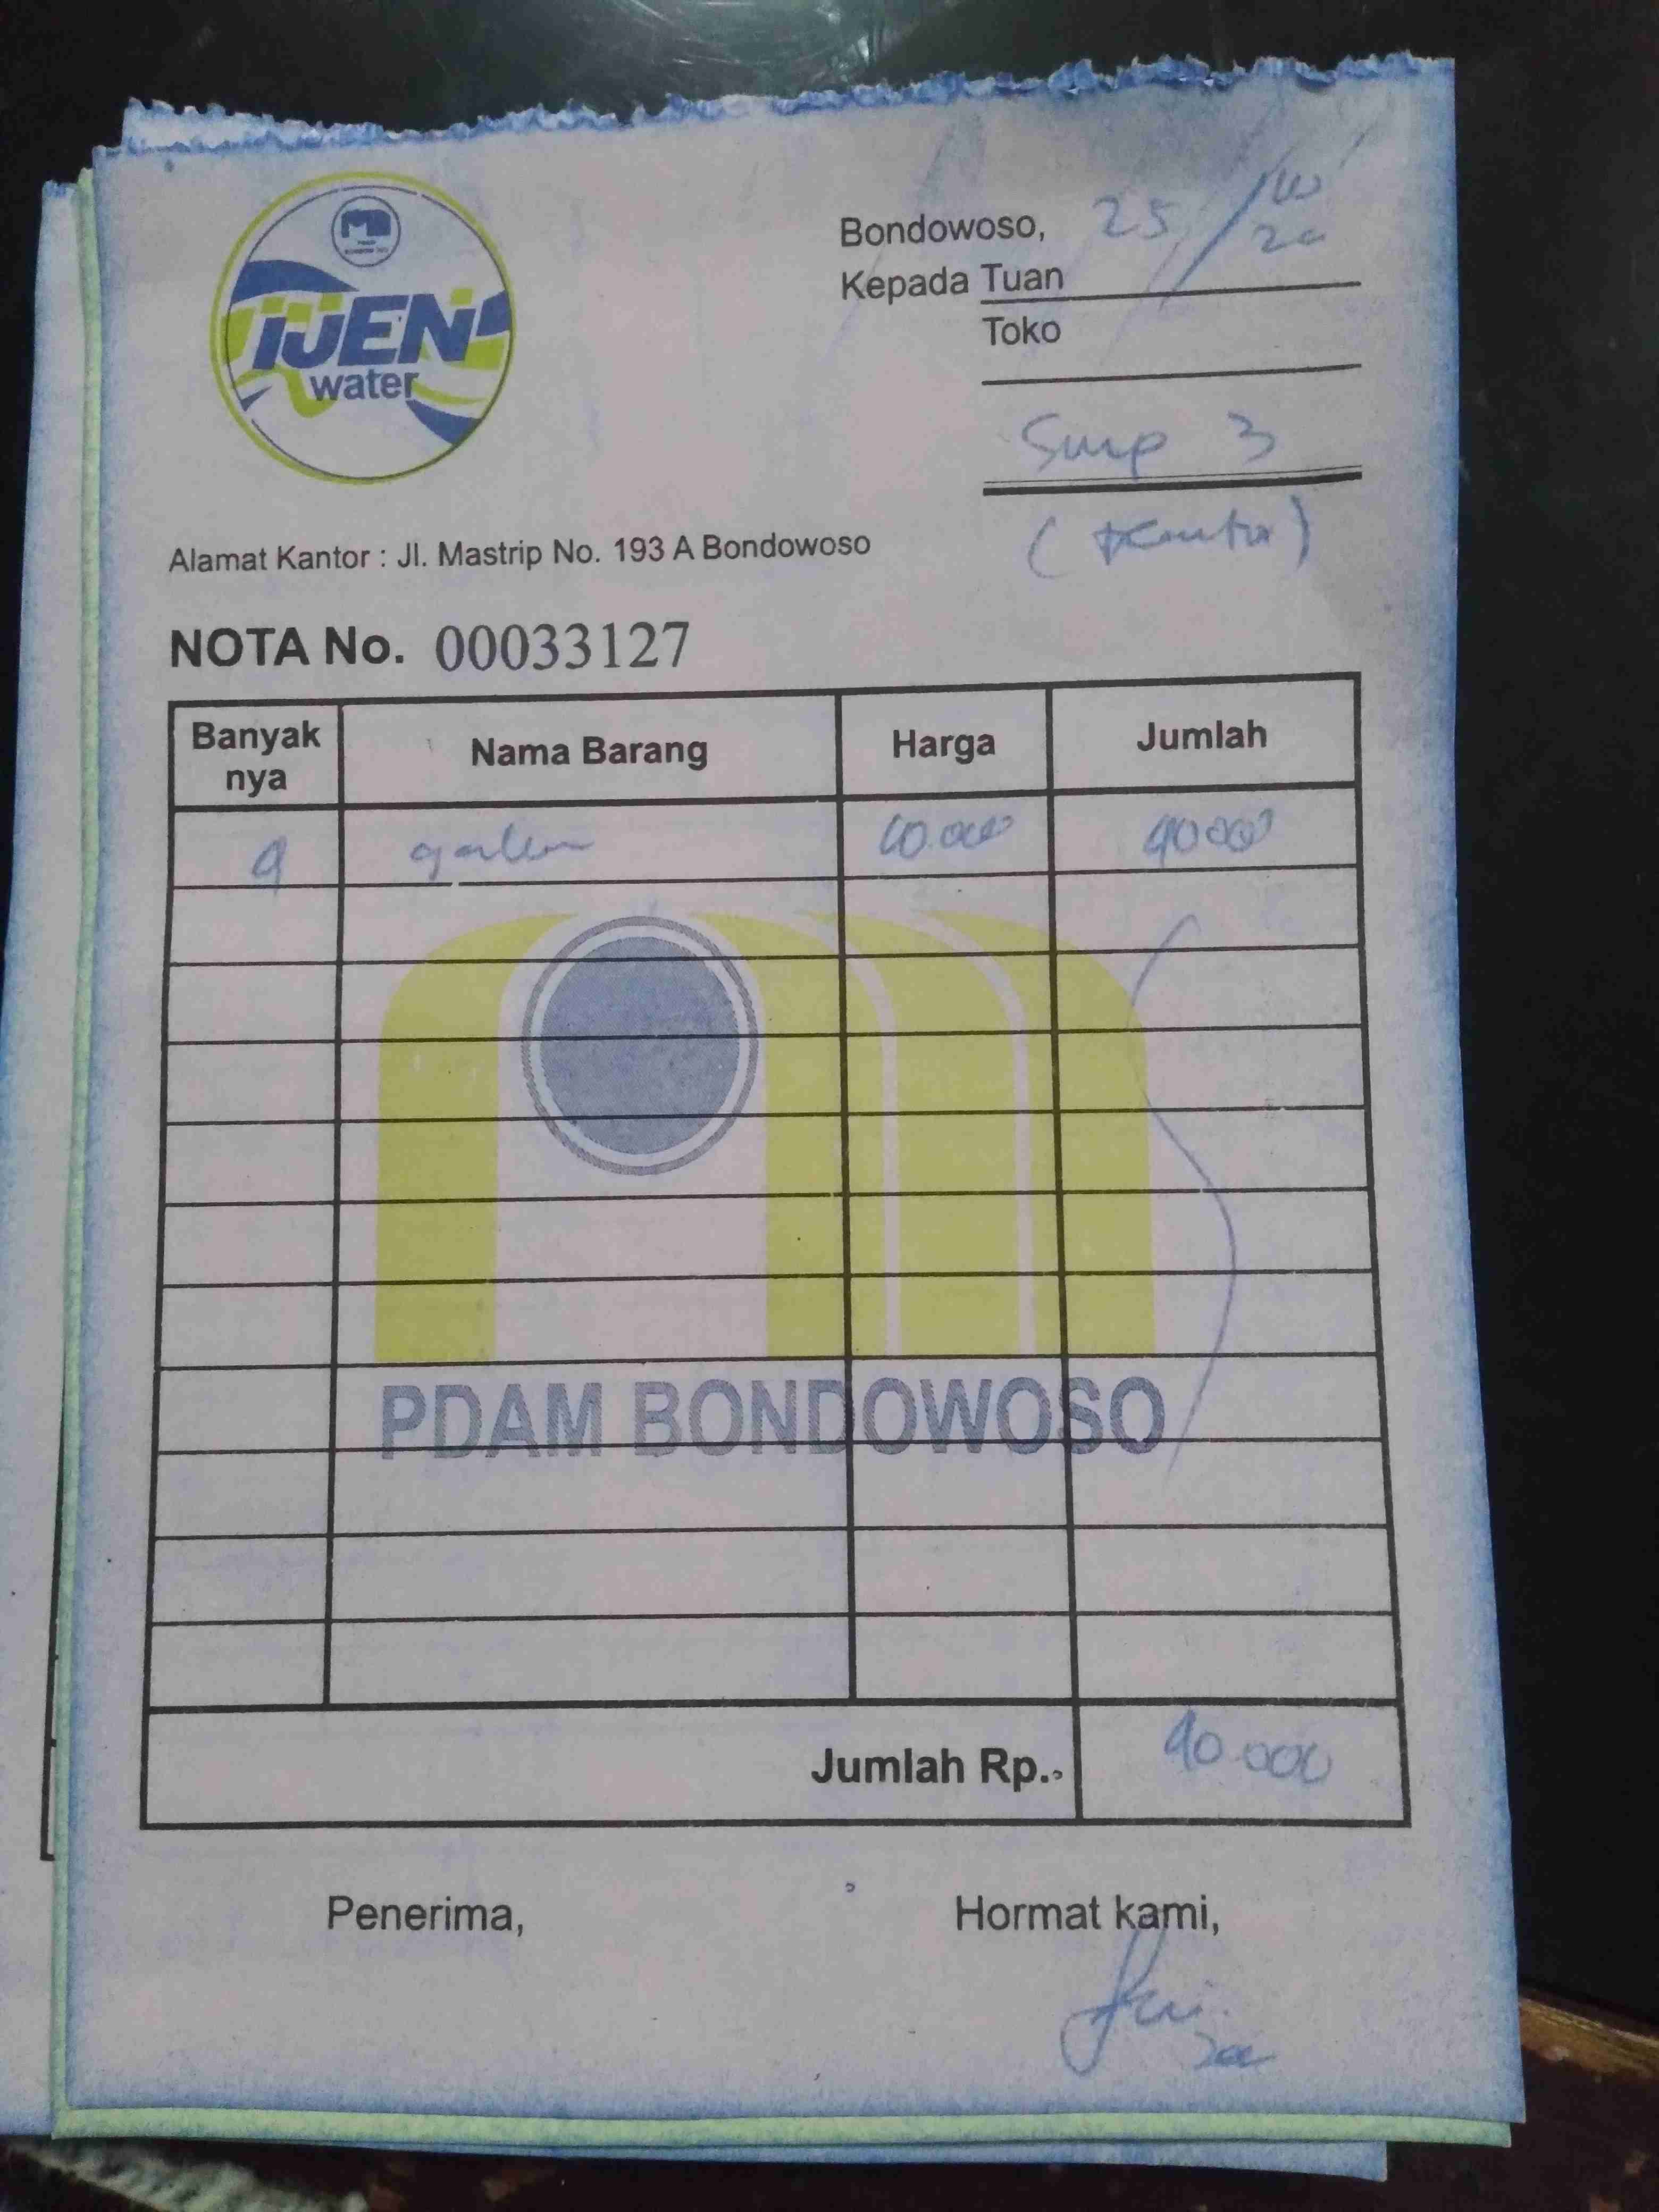 iJEN
water
Bondowoso, 25 / 10 20
Kepada Tuan
Toko
Smp 3
(Kantor)
Alamat Kantor : Jl. Mastrip No. 193 A Bondowoso
NOTA No. 00033127
Banyak nya Nama Barang Harga Jumlah
9 galon 10.000 90000
PDAM BONDOWOSO
Jumlah Rp. 90.000
Penerima, Hormat kami,